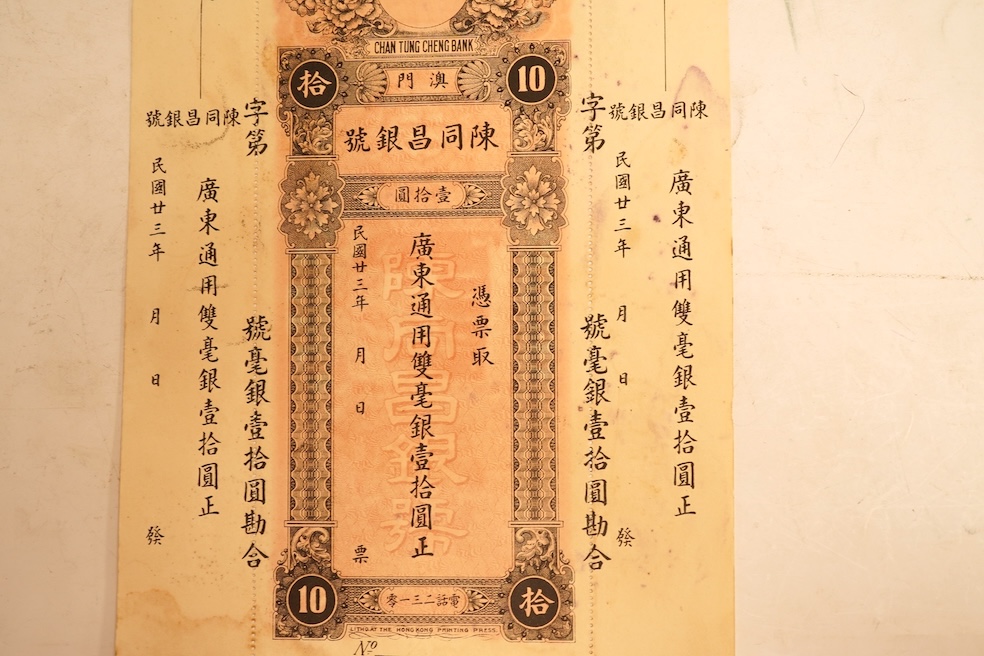 CHAN TUNG CHENG BANK
拾
澳門
10
陳同昌銀號
壹拾圓
憑票取
廣東通用雙毫銀壹拾圓正
民國廿三年 月 日 票
陳同昌銀號
10
電話二三一零
拾
LITHO AT THE HONG KONG PRINTING PRESS.
Nº
字第 號毫銀壹拾圓勘合
陳同昌銀號
廣東通用雙毫銀壹拾圓正
民國廿三年 月 日 發
字第 號毫銀壹拾圓勘合
陳同昌銀號
廣東通用雙毫銀壹拾圓正
民國廿三年 月 日 發